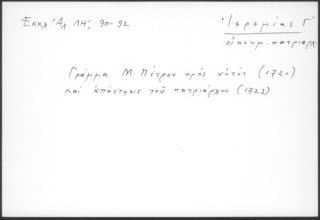 Ἐκκλ Ἀλ ΛΗ', 90-92
Ἱερεμίας Γ'
οἰκουμ. πατριάρχ.
Γράμμα Μ. Πέτρου πρὸς αὐτόν (1721)
καὶ ἀπάντησις τοῦ πατριάρχου (1723)